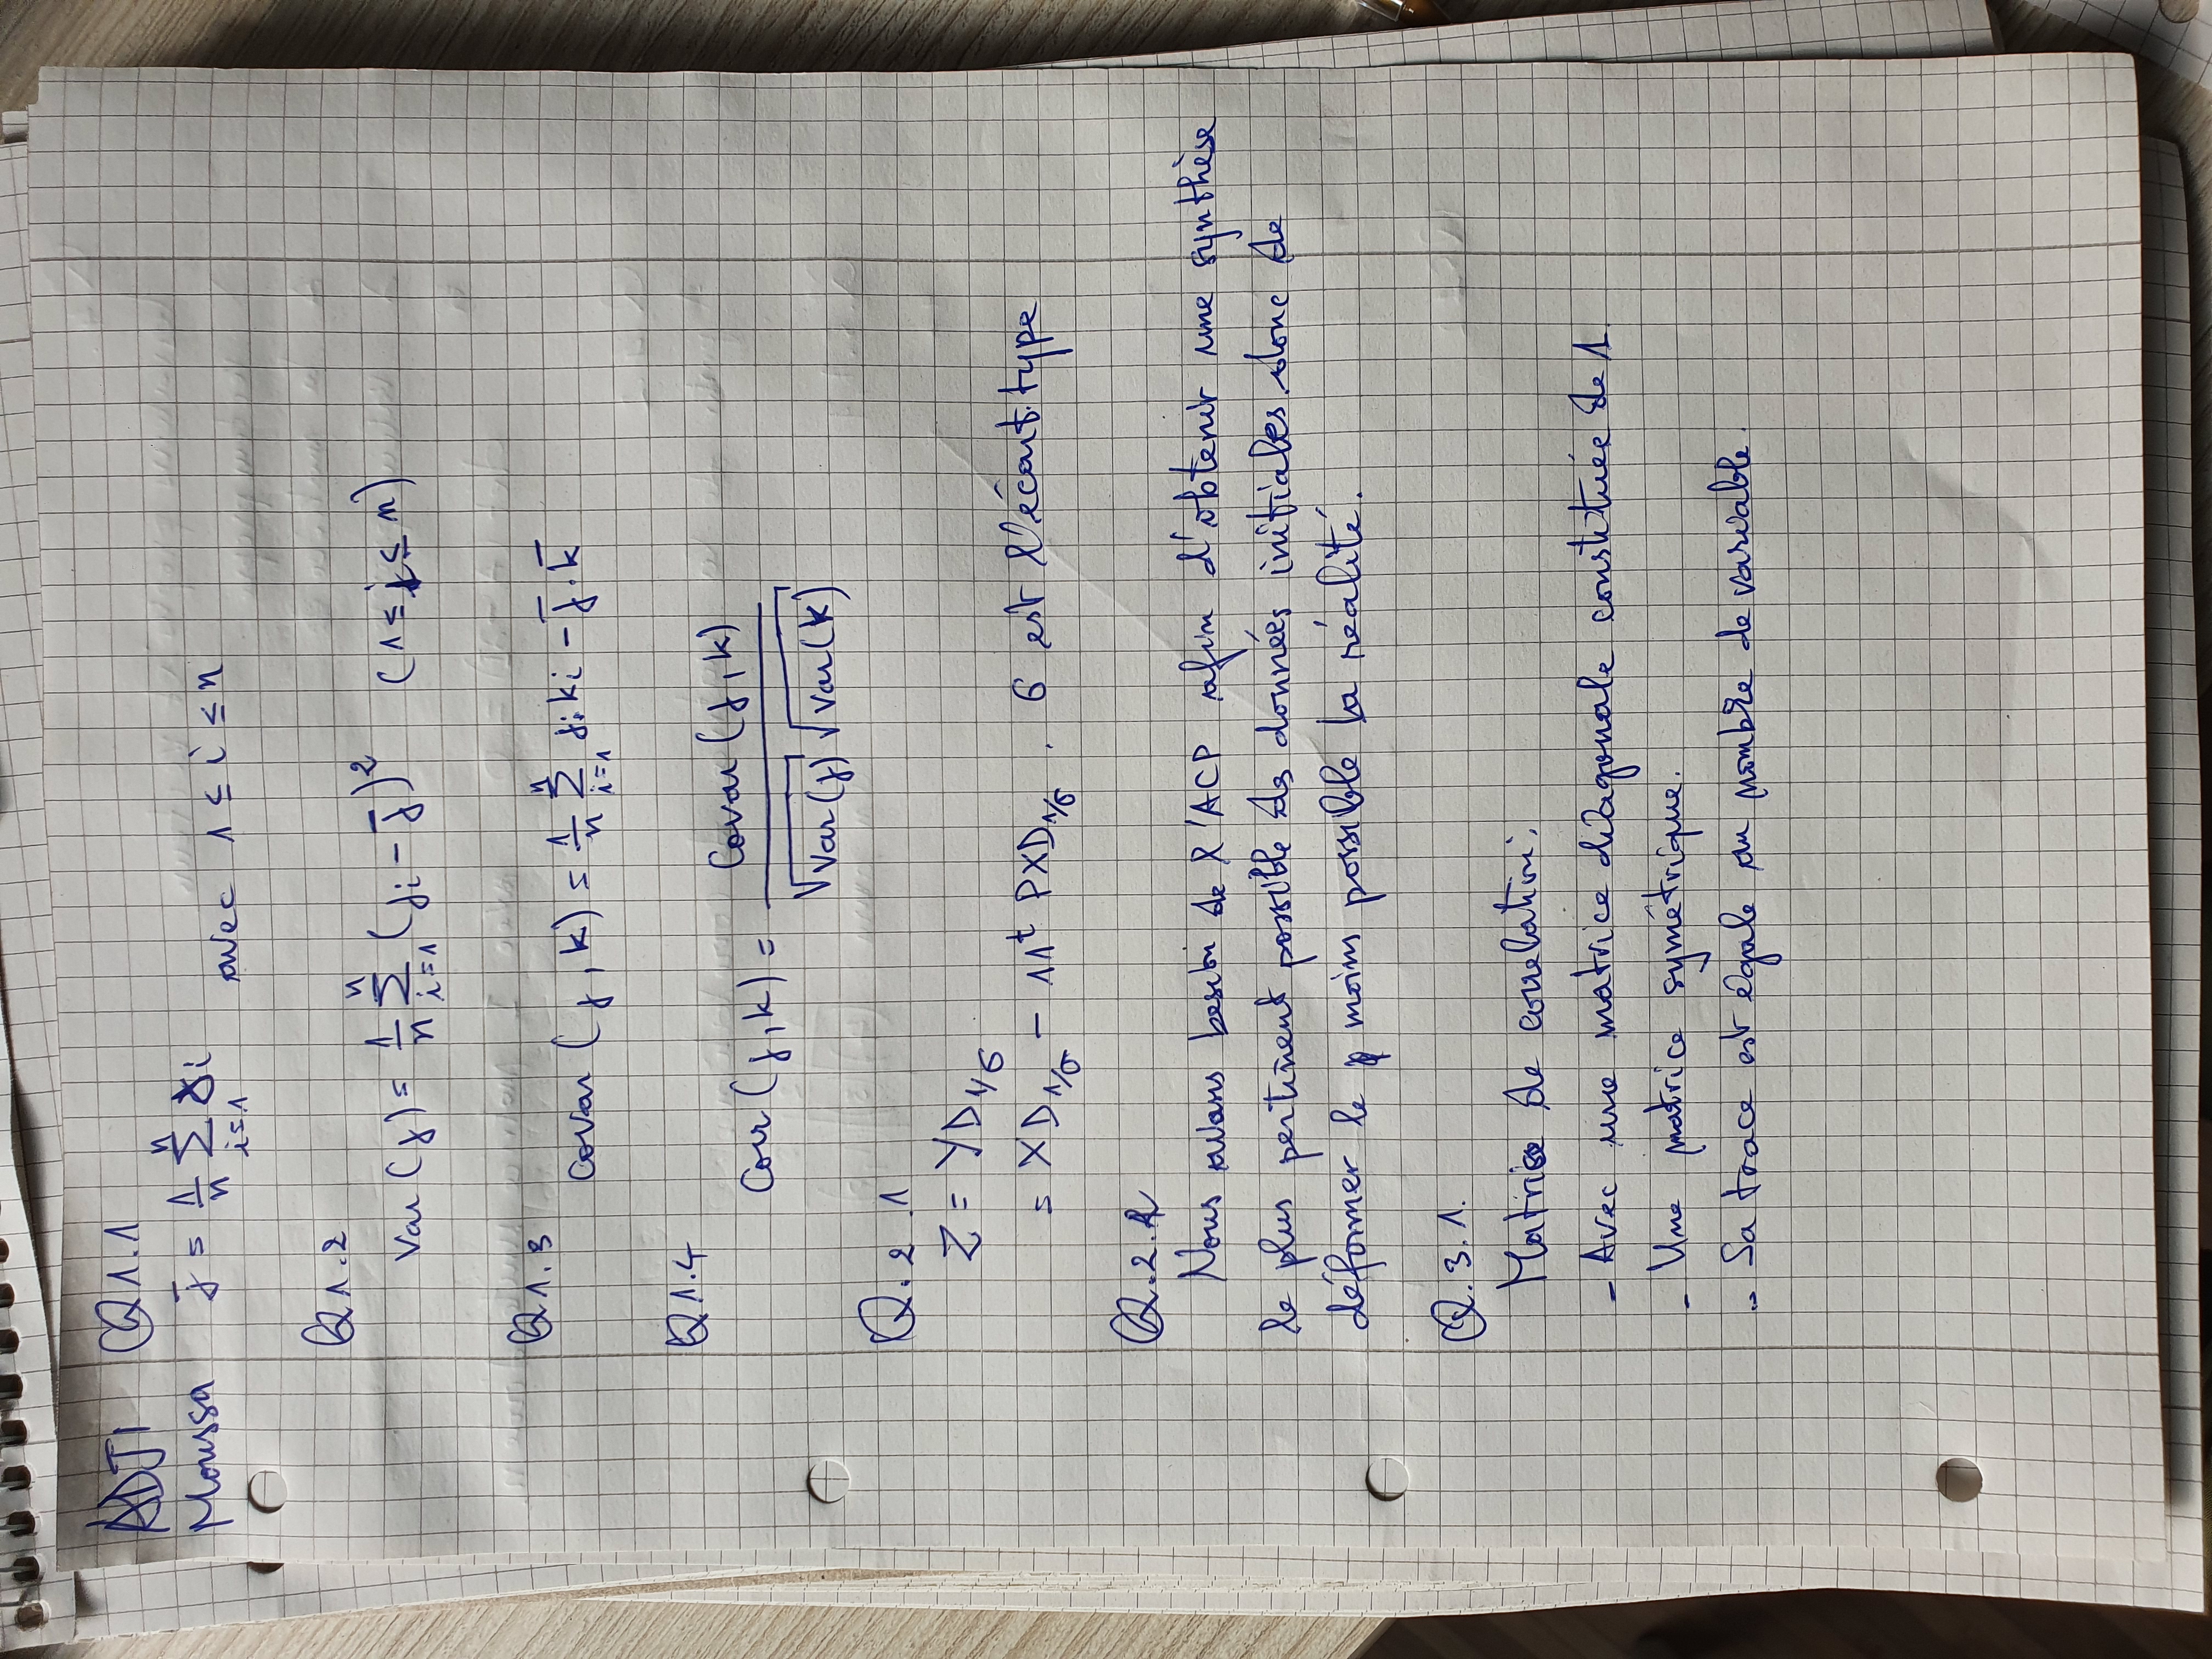 ADJI Q1.1
Moussa j̄ = 1/n ∑_{i=1}^{n} ji avec 1 ≤ i ≤ n
Q1.2
Var (j) = 1/n ∑_{i=1}^{n} (ji - j̄)² (1 ≤ j ≤ n)
Q1.3
Covar (j, k) = 1/n ∑_{i=1}^{n} ji ki - j̄ . k̄
Q1.4
Corr (j, k) = Covar (j, k) / √Var(j) √Var(k)
Q.2.1
Z = YD_{1/σ}
= XD_{1/σ} - 11ᵗ PXD_{1/σ} . σ est l'écart.type
Q.2.2
Nous avons besoin de l'ACP afin d'obtenir une synthèse
le plus pertinent possible des données initiales donc de
déformer le moins possible la réalité.
Q.3.1.
Matrice de correlation:
- Avec une matrice diagonale constituée de 1.
- Une matrice symétrique.
- Sa trace est égale au nombre de variable.